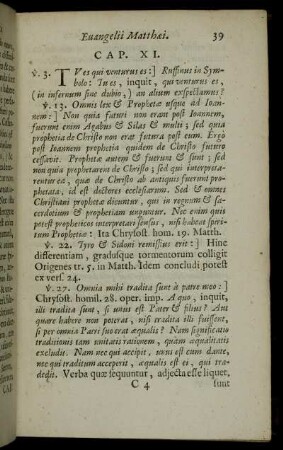 Euangelii Matthæi. 39
CAP. XI.
℣. 3. TVes qui venturus es:] Ruffinus in Sym-
bolo: Tu es, inquit, qui venturus es,
(in infernum sine dubio,) an alium expectamus?
℣. 13. Omnis lex & Prophetæ usque ad Ioan-
nem:] Non quia futuri non erant post Ioannem,
fuerunt enim Agabus & Silas & multi; sed quia
prophetia de Christo non erat futura post eum. Ergò
post Ioannem prophetia quidem de Christo futuro
cessavit. Prophetæ autem & fuerunt & sunt; sed
non quia prophetarent de Christo; sed qui interpreta-
rentur ea, quæ de Christo ab antiquis fuerunt pro-
phetata, id est doctores ecclesiarum. Sed & omnes
Christiani prophetæ dicuntur, qui in regnum & sa-
cerdotium & prophetiam unguntur. Nec enim quis
potest propheticos interpretari sensus, nisi habeat spiri-
tum Prophetiæ: Ita Chrysost. hom. 19. Matth.
℣. 22. Tyro & Sidoni remissius erit:] Hinc
differentiam, gradusque tormentorum colligit
Origenes tr. 5. in Matth. Idem concludi potest
ex vers. 24.
℣. 27. Omnia mihi tradita sunt à patre meo:]
Chrysost. homil. 28. oper. imp. A quo, inquit,
illi tradita sunt, si unus est Pater & filius? Aut
quare habere non poterat, nisi tradita illi fuissent,
si per omnia Patri suo erat æqualis? Nam significatio
traditionis tam unitatis rationem, quàm æqualitatis
excludit. Nam nec qui accipit, unus est cum dante,
nec qui traditum acceperit, æqualis est ei, qui tra-
dedit. Verba quæ sequuntur, adjecta esse liquet,
C 4 sunt